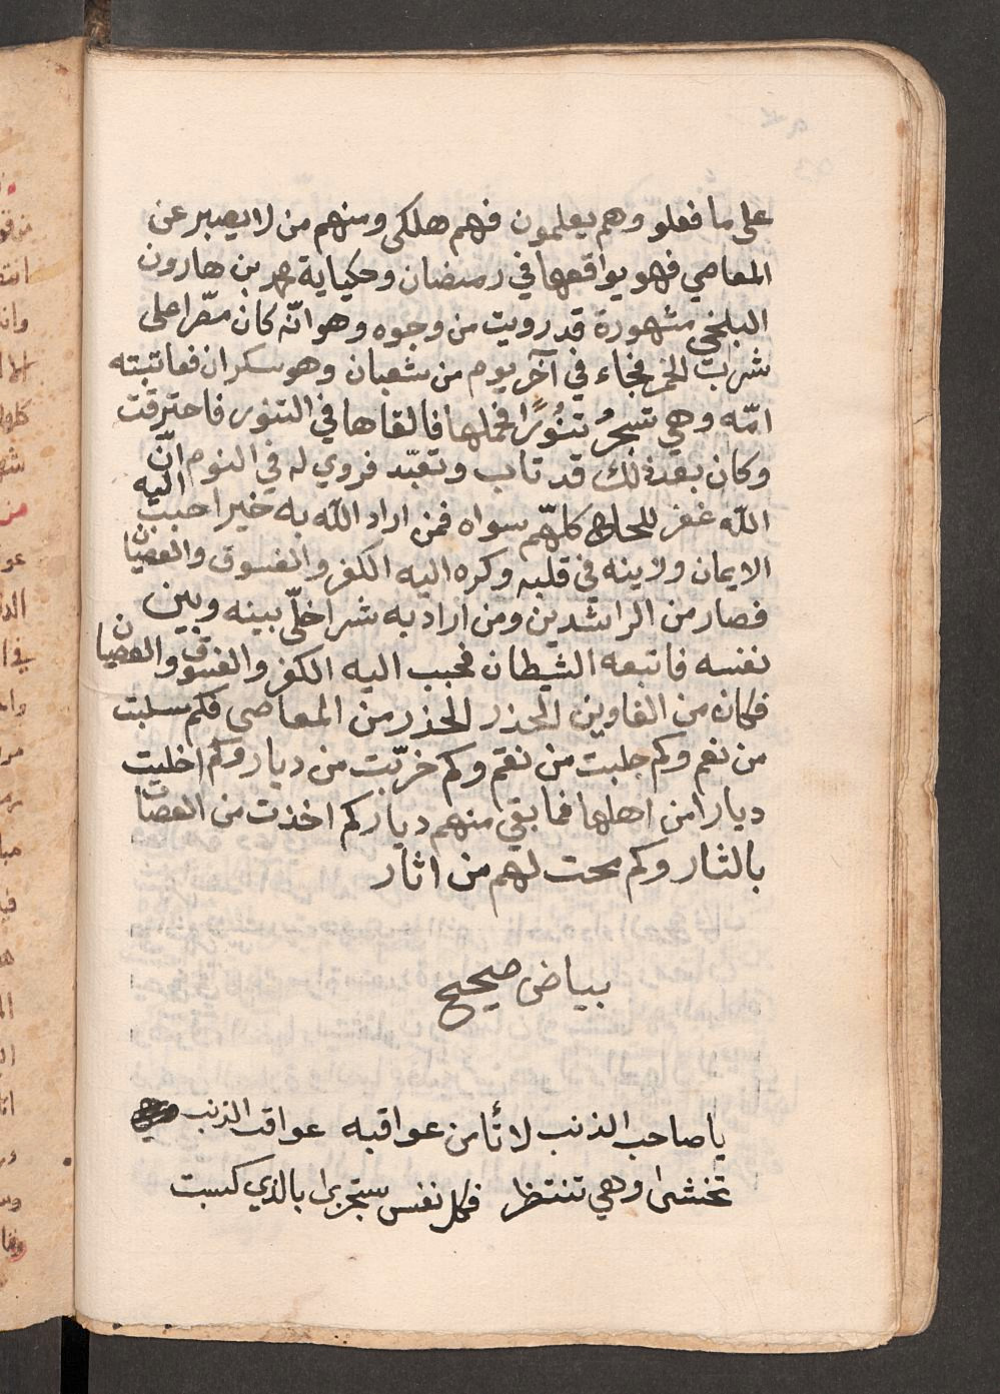 على ما فعلو وهم يعلمون فهم هلكى ومنهم من لا يصبر عن
المعاصي فهو يواقعها في رمضان وحكياية محمد بن هارون
البلخي مشهورة قد رويت من وجوه وهو انّه كان مصّرا على
شراب الخمر فجاء في آخر يوم من شعبان وهو سكران فعاتبته
امّه وهي تسجرُ تنُورًا فحملها فالقاها في التنور فاحترقت
وكان بعد ذلك قد تاب وتعبّد فروي له في النوم انّ
الله غفر للحاج كلهّم سواه فمن اراد الله به خيرا حبب اليه
الايمان وزينه في قلبه وكره اليه الكفر والفسوق والعصيان
فصار من الراشدين ومن اراد به شرا خلّى بينه وبين
نفسه فاتبعه الشيطان فحبب اليه الكفر والفسوق والعصيان
فكان من الغاوين الحذر الحذر من المعاصي فكم سلبت
من نعم وكم جلبت من نقم وكم خرّبت من ديار وكم اخليت
ديارا من اهلها فما بقي منهم ديار كم اخذت من العصات
بالثار وكم محت لهم من اثار
بياض صحيح
يا صاحب الذنب لا تأمن عواقبه عواقب الذنب
تخشى وهي تنتظر فكل نفس ستجزى بالذي كسبت